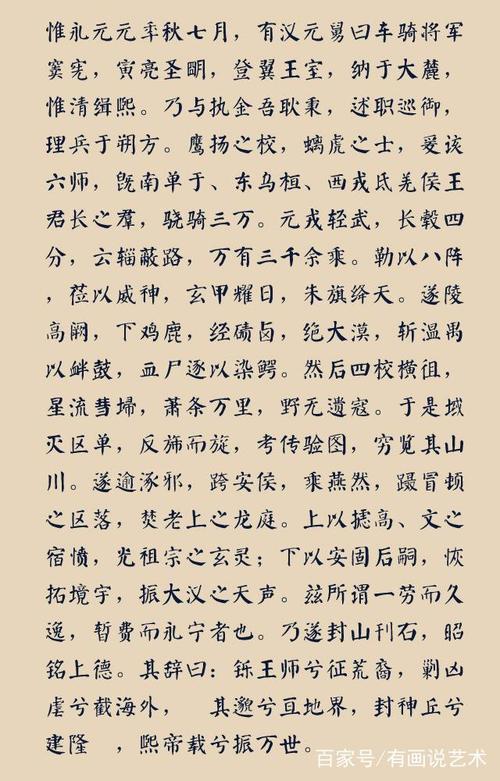 惟永元元年秋七月，有汉元舅曰车骑将军
窦宪，寅亮圣明，登翼王室，纳于大麓，
惟清缉熙。乃与执金吾耿秉，述职巡御，
理兵于朔方。鹰扬之校，螭虎之士，爰该
六师，既南单于、东乌桓、西戎氐羌侯王
君长之群，骁骑三万。元戎轻武，长毂四
分，云辎蔽路，万有三千余乘。勒以八阵
，莅以威神，玄甲耀日，朱旗绛天。遂陵
高阙，下鸡鹿，经碛卤，绝大漠，斩温禺
以衅鼓，血尸逐以染锷。然后四校横徂，
星流彗埽，萧条万里，野无遗寇。于是域
灭区单，反旆而旋，考传验图，穷览其山
川。遂逾涿邪，跨安侯，乘燕然，蹑冒顿
之区落，焚老上之龙庭。上以摅高、文之
宿愤，光祖宗之玄灵；下以安固后嗣，恢
拓境宇，振大汉之天声。兹所谓一劳而久
逸，暂费而永宁者也。乃遂封山刊石，昭
铭上德。其辞曰：铄王师兮征荒裔，剿凶
虐兮截海外， 其邈兮亘地界，封神丘兮
建隆 ，熙帝载兮振万世。
百家号/有画说艺术